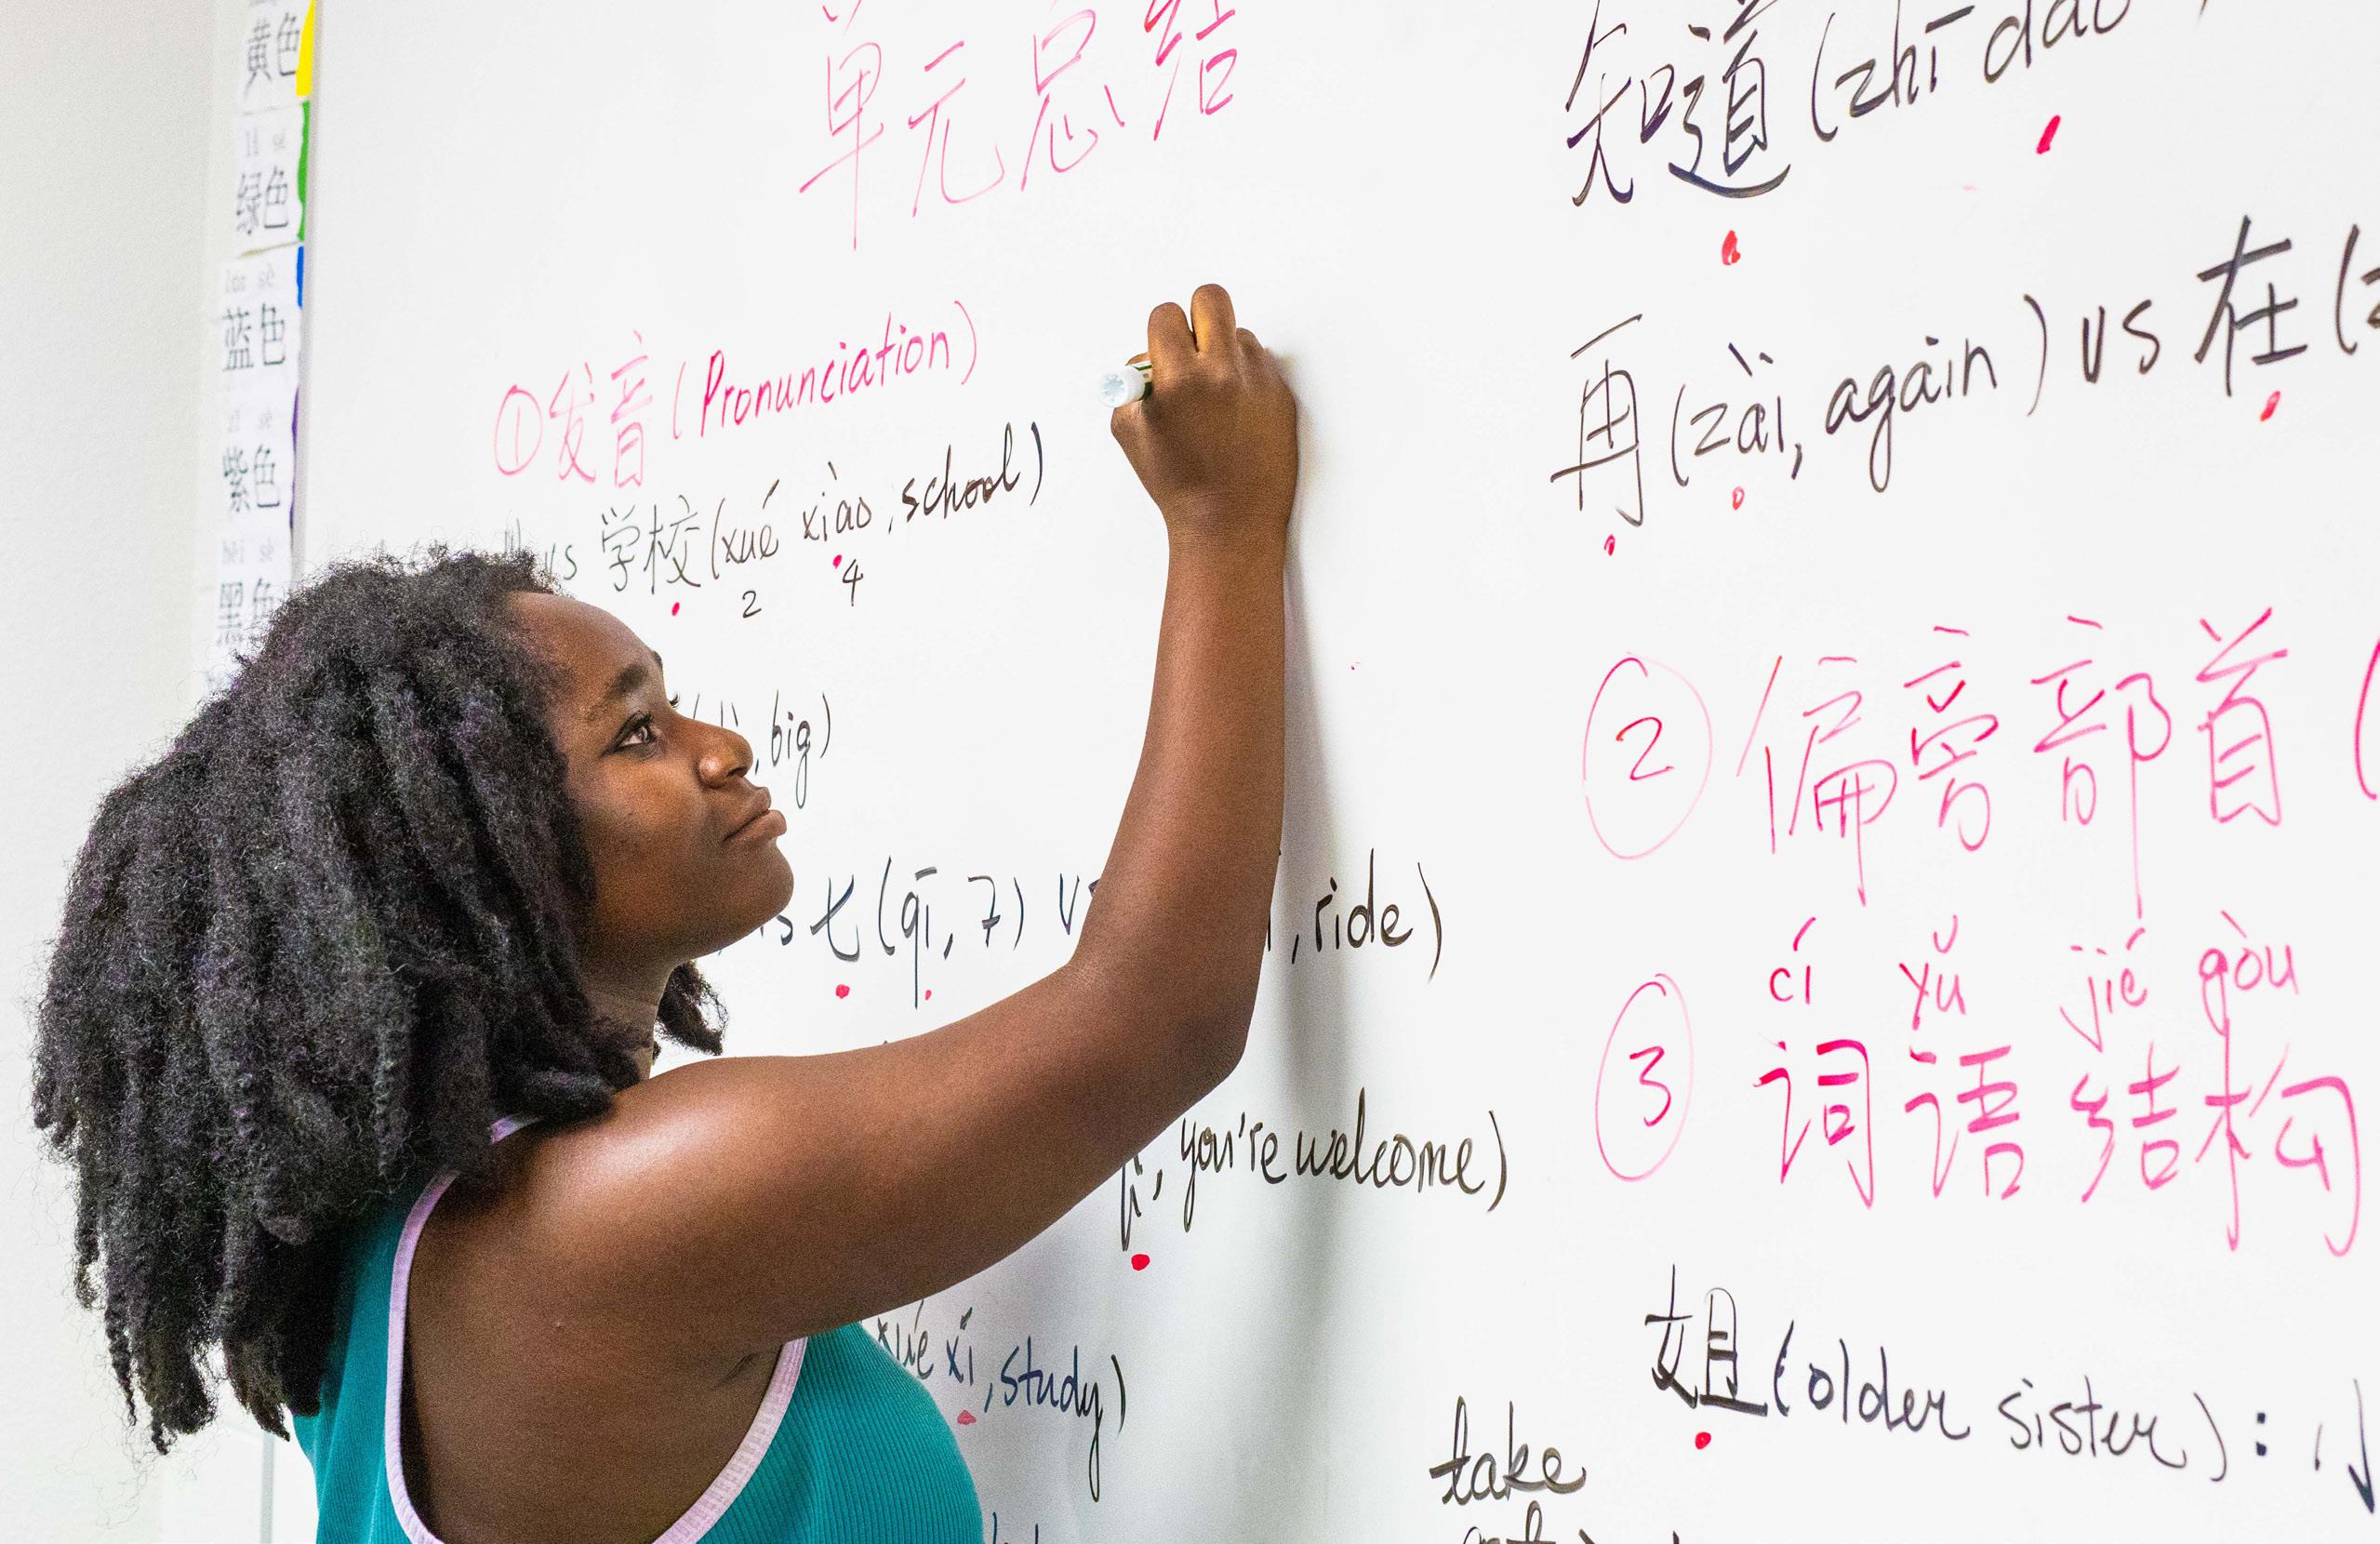 黄色
lǜ sè
绿色
lán sè
蓝色
zǐ sè
紫色
hēi sè
黑色
单元总结
①发音(Pronunciation)
vs 学校(xué xiào, school)
2 4
, big)
七(qī, 7)
, ride)
, you're welcome)
xué xí, study)
知道(zhī dào
再(zài, again) vs 在(
②偏旁部首(
cí yǔ jié gòu
③词语结构
姐(older sister):
take